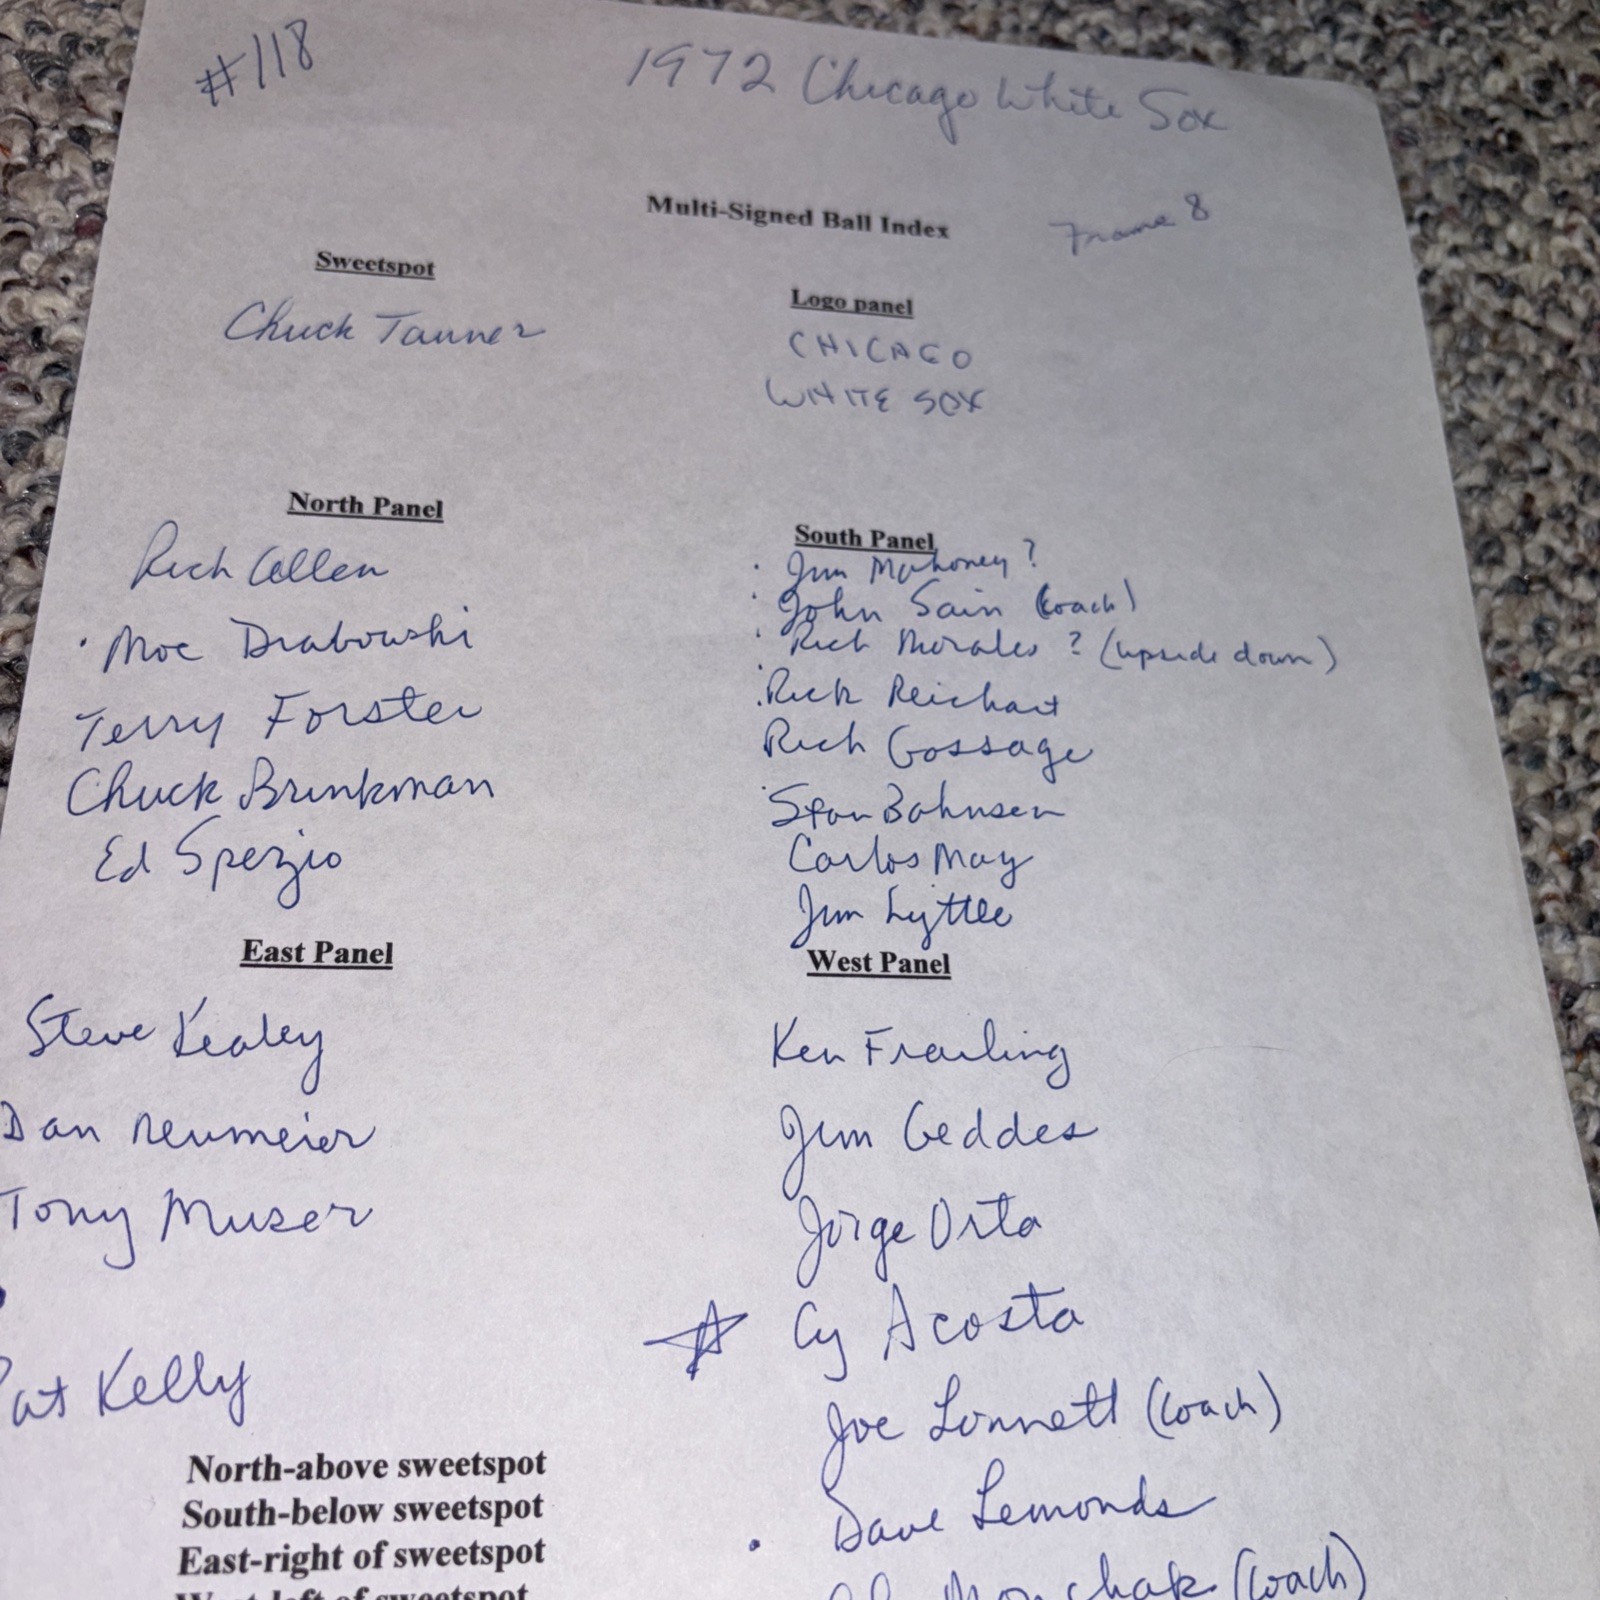 #118
1972 Chicago White Sox
Multi-Signed Ball Index
Frame 8
Sweetspot
Chuck Tanner
Logo panel
CHICAGO
WHITE SOX
North Panel
Rich Allen
· Moe Drabowski
Terry Forster
Chuck Brinkman
Ed Spezio
South Panel
· Jim Mahoney ?
· John Sain (coach)
· Rich Morales ? (upside down)
· Rick Reichart
Rich Gossage
· Stan Bahnsen
Carlos May
Jim Lyttle
East Panel
Steve Kealey
Dan Neumeier
Tony Muser
Pat Kelly
West Panel
Ken Frailing
Jim Geddes
Jorge Orta
☆ Cy Acosta
Joe Lonnett (coach)
· Dave Lemonds
Monchak (coach)
North-above sweetspot
South-below sweetspot
East-right of sweetspot
West-left of sweetspot